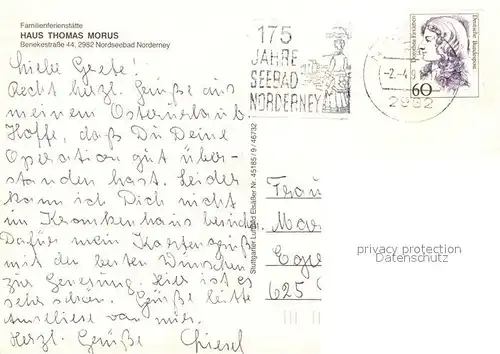 Familienferienstätte
HAUS THOMAS MORUS
Benekestraße 44, 2982 Nordseebad Norderney
Liebe Grete!
Recht herzl. Grüße aus
meinem Osterurlaub
Hoffe, daß Du Deine
Operation gut über-
standen hast. Leider
kann ich Dich nicht
im Krankenhaus besuch
Dafür mein Kartengruß
mit den besten Wünschen
zur Genesung. Hier ist es
sehr schön. Grüße bitte
Anneliese von mir.
Herzl. Grüße
175
JAHRE
SEEBAD
NORDERNEY
-2.-4.9
2982
Deutsche Bundespost
60
Stuttgarter Luftbild Elsäßer Nr. 45185 / 9 / 46732
Frau
Mar
625
privacy protection
VEIKKOS.COM